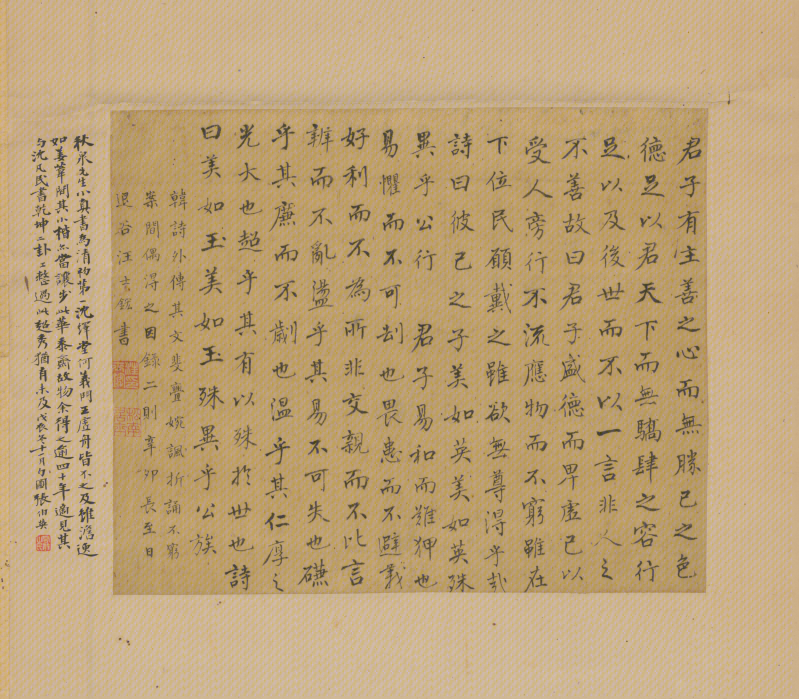 君子有主善之心而無勝己之色
德足以君天下而無驕肆之容行
足以及後世而不以一言非人之
不善故曰君子盛德而卑虛己以
受人旁行不流應物而不窮雖在
下位民願戴之雖欲無尊得乎哉
詩曰彼己之子美如英美如英殊
異乎公行 君子易和而難狎也
易懼而不可刦也畏患而不避義
好利而不為所非交親而不比言
辨而不亂盪乎其易不可失也磏
乎其廉而不劌也溫乎其仁厚之
光大也超乎其有以殊於世也詩
曰美如玉美如玉殊異乎公族
韓詩外傳其文斐亹婉諷折誦不窮
案間偶得之因錄二則辛卯長至日
退谷汪士鋐書
秋泉先生小真書為清初第一沈繹堂何義門王虛舟皆不之及雖澹遠
如姜葦間其小楷亦當讓步此華泰齋故物余得之逾四十年適見其
與沈凡民書乾坤二卦工整過此超秀猶有未及戊辰冬十二月勺圃張伯英